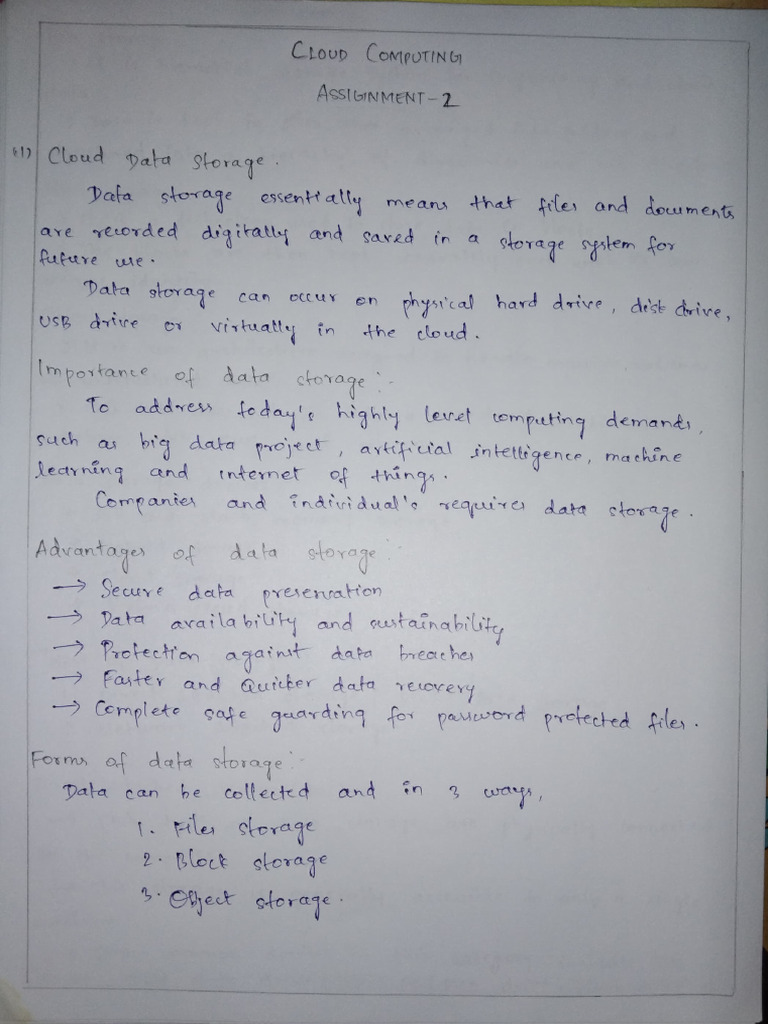 CLOUD COMPUTING
ASSIGNMENT-2
1) Cloud Data Storage.
Data storage essentially means that files and documents
are recorded digitally and saved in a storage system for
future use.
Data storage can occur on physical hard drive, disk drive,
USB drive or virtually in the cloud.
Importance of data storage:-
To address today's highly level computing demands,
such as big data project, artificial intelligence, machine
learning and internet of things.
Companies and individual's requires data storage.
Advantages of data storage:-
→ Secure data preservation
→ Data availability and sustainability
→ Protection against data breaches
→ Faster and Quicker data recovery
→ Complete safe guarding for password protected files.
Forms of data storage:-
Data can be collected and in 3 ways,
1. Files storage
2. Block storage
3. Object storage.